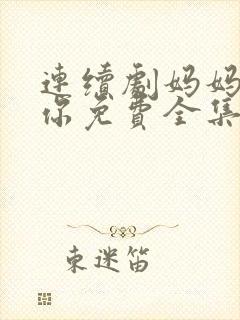 連續劇妈妈
你免費全集
東迷笛